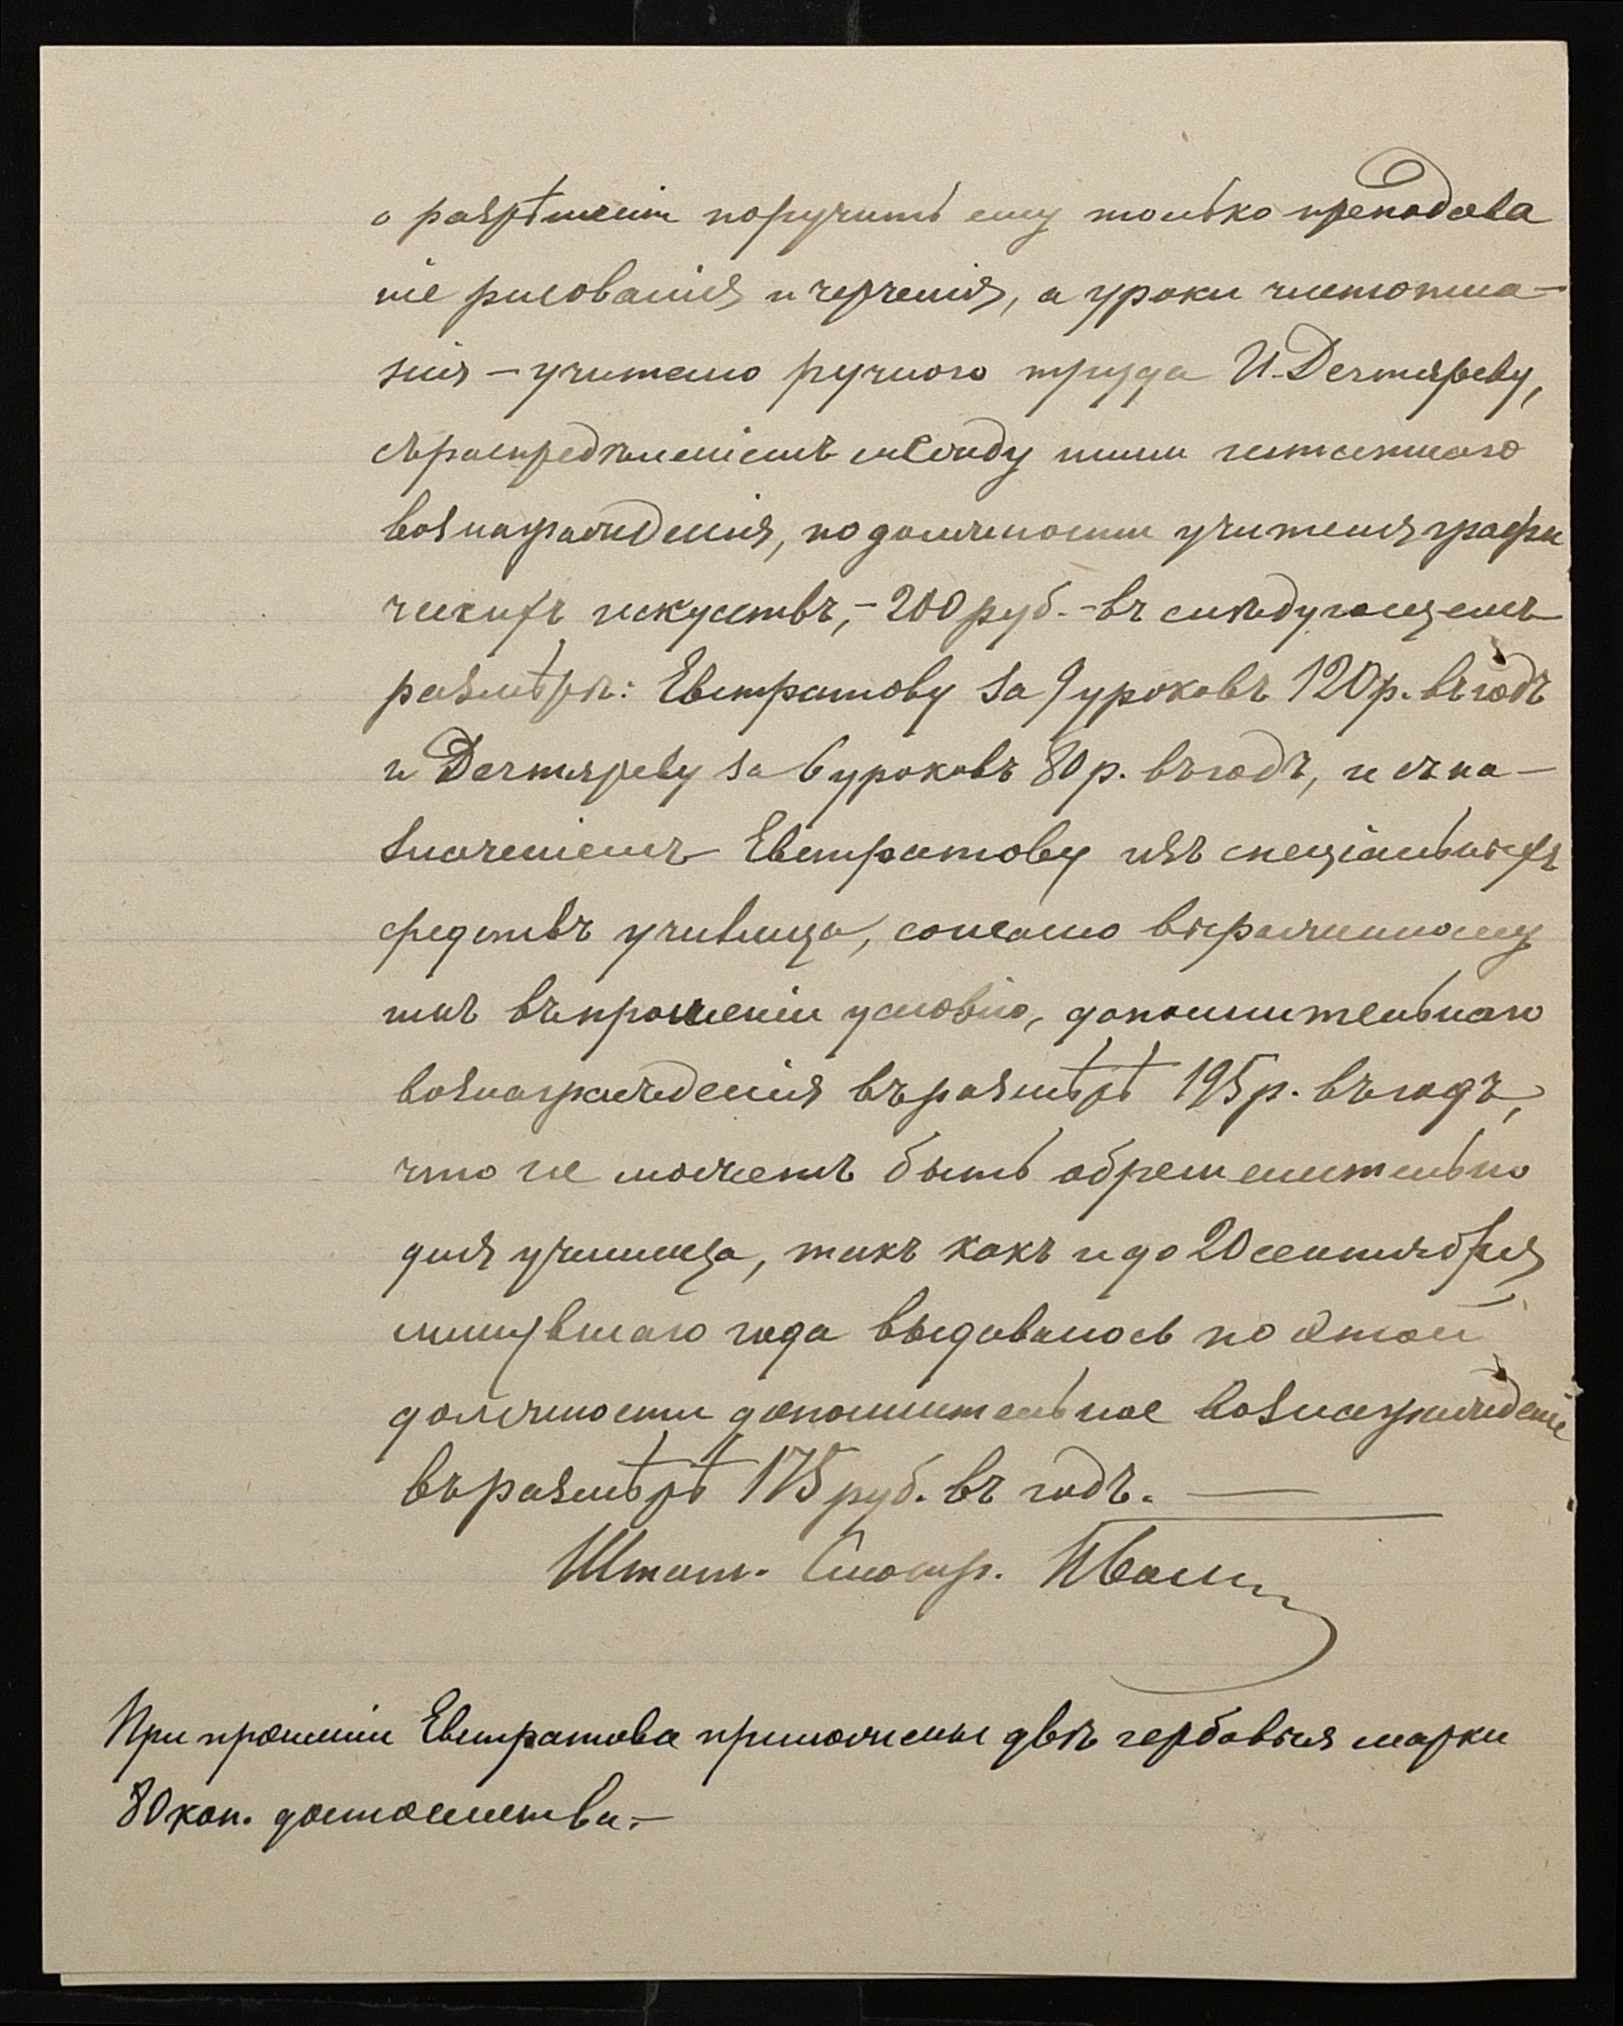 о разрѣшеніи поручить ему только преподава
ніе рисованія и черченія, а уроки чистописа-
нія – учителю ручного труда И. Дегтяреву,
съ распредѣленіемъ между ними штатнаго
вознагражденія, по должности учителя графи
ческихъ искуствъ, – 200 руб. – въ слѣдующемъ
размѣрѣ: Евстратову за 9 уроковъ 120 р. въ годъ
и Дегтяреву за 6 уроковъ 80 р. въ годъ, и съ на-
значеніемъ Евстратову изъ спеціальныхъ
средствъ училища, согласно выраженному
имъ въ прошеніи условію, дополнительнаго
вознагражденія въ размѣрѣ 195 р. въ годъ,
что не можетъ быть обременительно
для училища, такъ какъ и до 20 сентября
минувшаго года выдавалось по этой
должности дополнительное вознагражденіе
въ размѣрѣ 175 руб. въ годъ. —
Штат. Смотр.
При прошеніи Евстратова приложены двѣ гербовыя марки
80 коп. достоинства. –